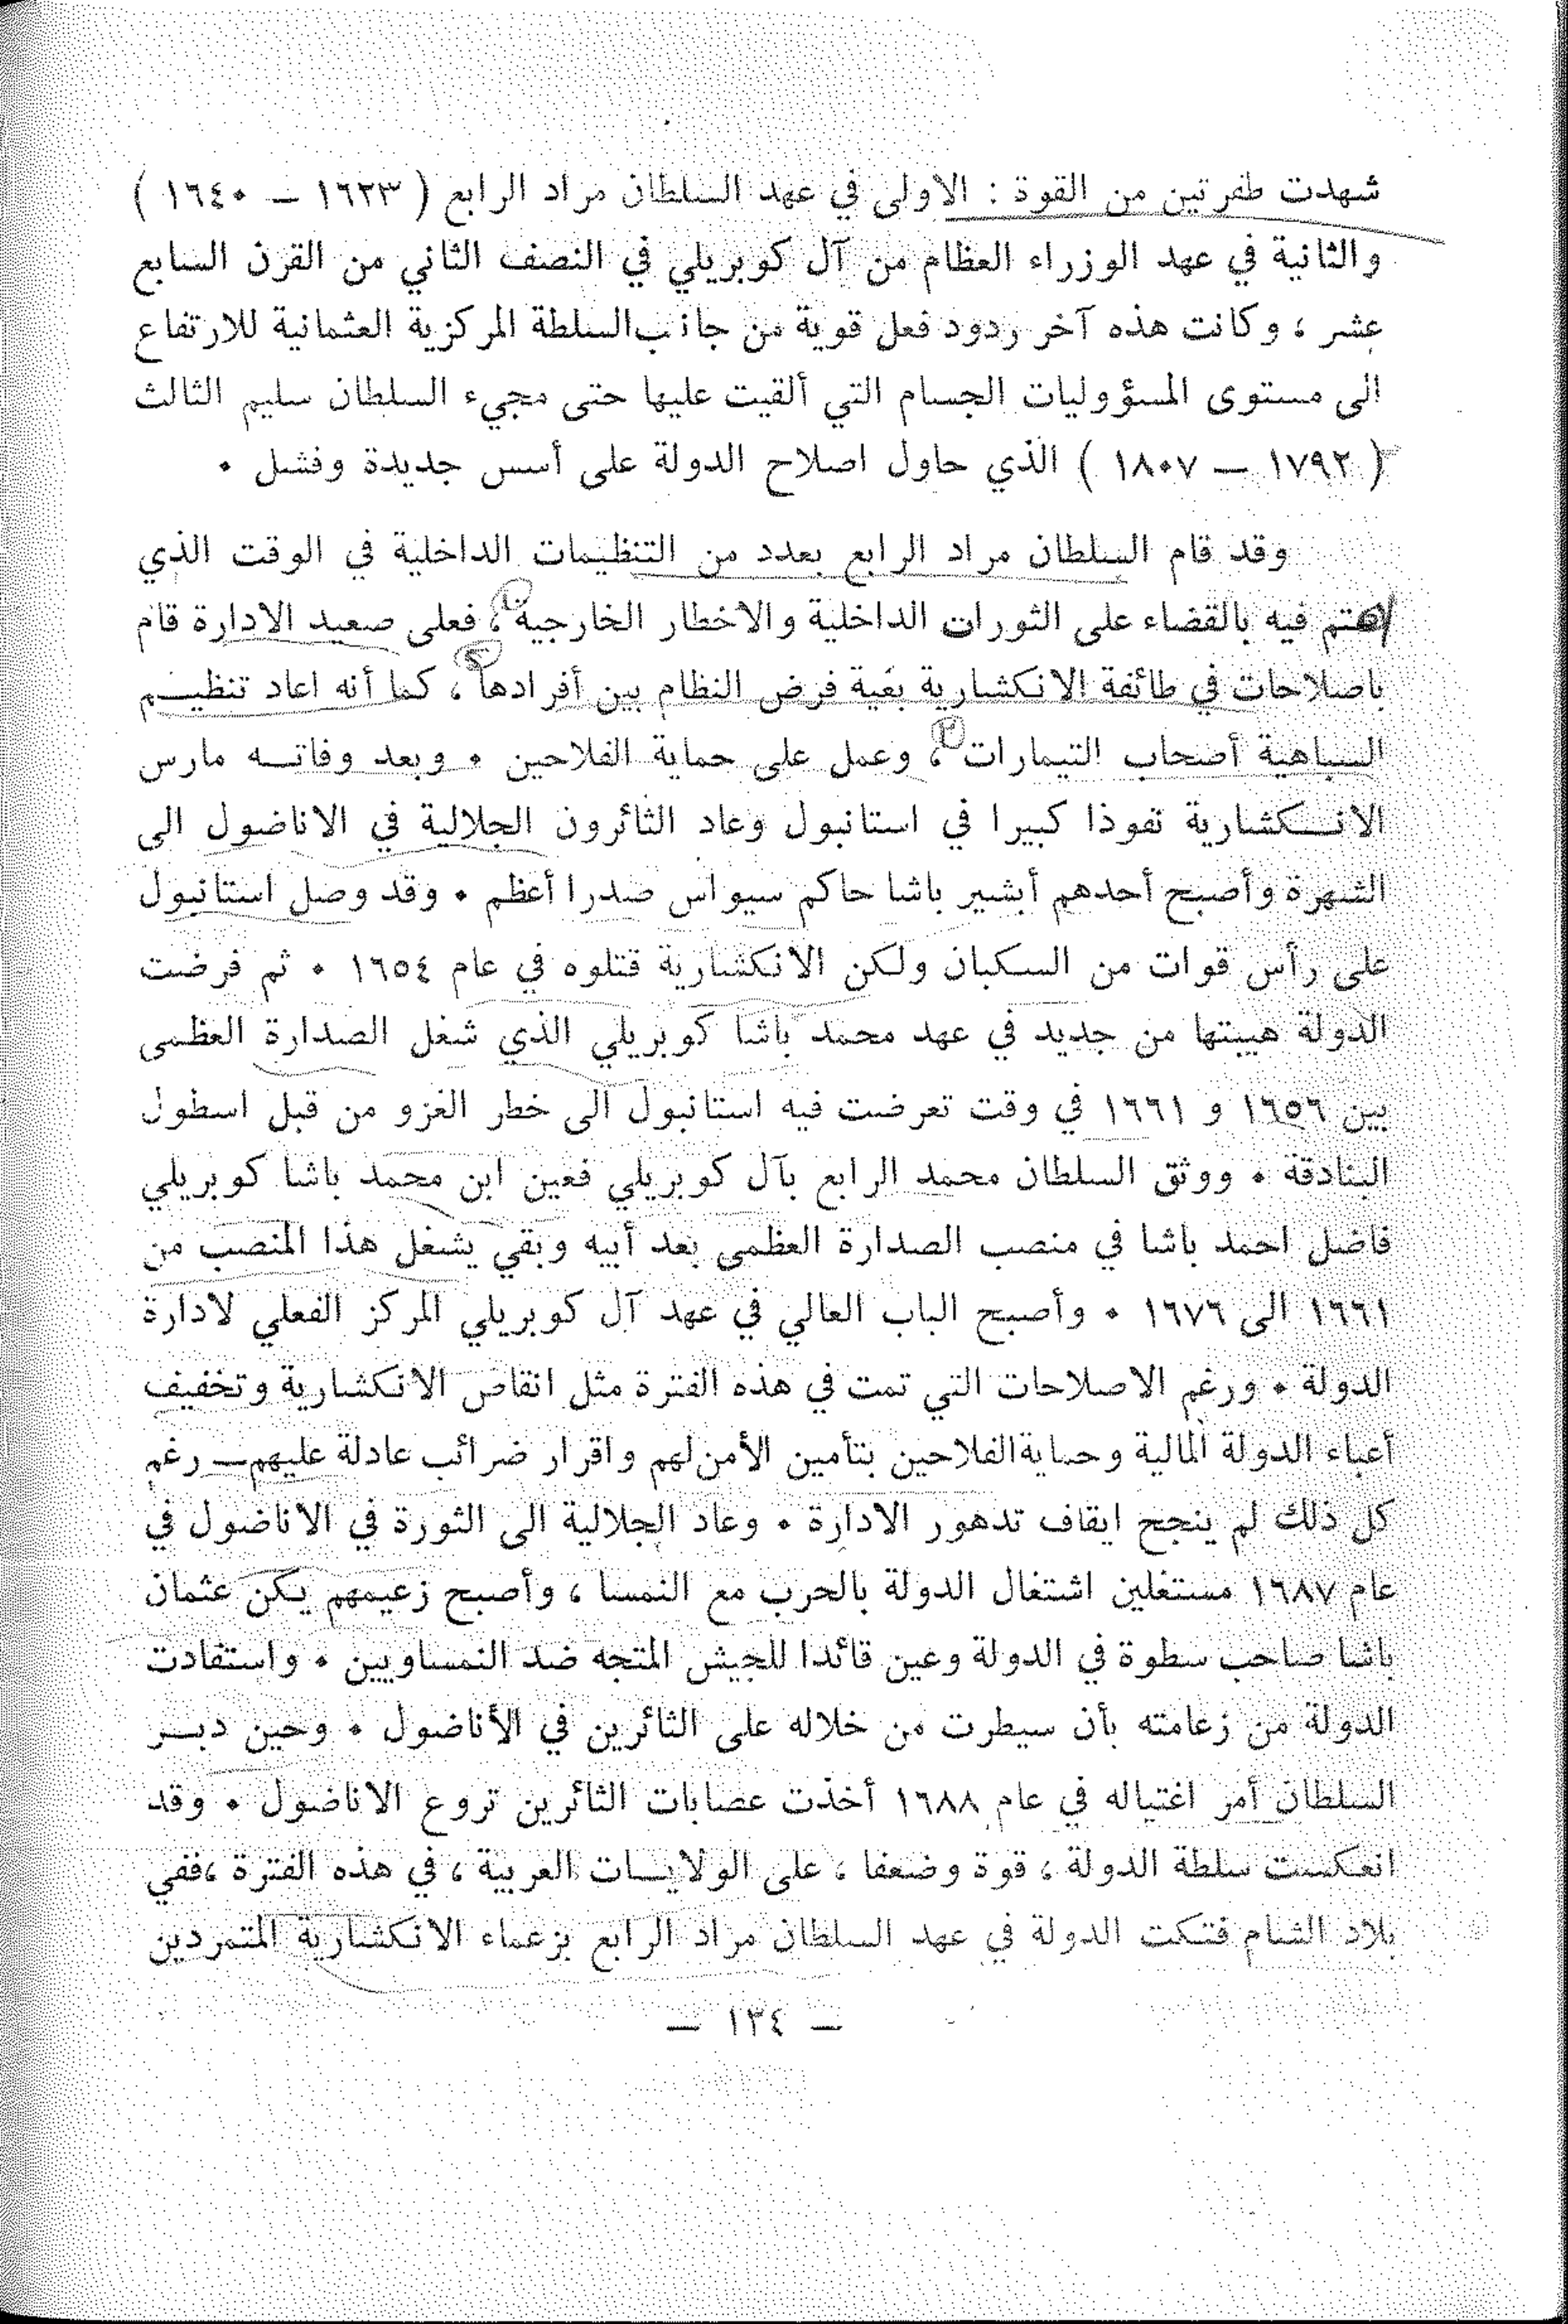 شهدت طفرتين من القوة : الاولى في عهد السلطان مراد الرابع ( ١٦٢٣ — ١٦٤٠ )
والثانية في عهد الوزراء العظام من آل كوبريلي في النصف الثاني من القرن السابع
عشر ، وكانت هذه آخر ردود فعل قوية من جانب السلطة المركزية العثمانية للارتفاع
الى مستوى المسؤوليات الجسام التي ألقيت عليها حتى مجيء السلطان سليم الثالث
( ١٧٩٢ — ١٨٠٧ ) الذي حاول اصلاح الدولة على أسس جديدة وفشل ٠
وقد قام السلطان مراد الرابع بعدد من التنظيمات الداخلية في الوقت الذي
اهتم فيه بالقضاء على الثورات الداخلية والاخطار الخارجية ، فعلى صعيد الادارة قام
باصلاحات في طائفة الانكشارية بغية فرض النظام بين أفرادها ، كما أنه اعاد تنظيم
السباهية أصحاب التيمارات ، وعمل على حماية الفلاحين ٠ وبعد وفاته مارس
الانكشارية نفوذا كبيرا في استانبول وعاد الثائرون الجلالية في الاناضول الى
الشهرة وأصبح أحدهم أبشير باشا حاكم سيواس صدرا أعظم ٠ وقد وصل استانبول
على رأس قوات من السكبان ولكن الانكشارية قتلوه في عام ١٦٥٤ ٠ ثم فرضت
الدولة هيبتها من جديد في عهد محمد باشا كوبريلي الذي شغل الصدارة العظمى
بين ١٦٥٦ و ١٦٦١ في وقت تعرضت فيه استانبول الى خطر الغزو من قبل اسطول
البنادقة ٠ ووثق السلطان محمد الرابع بآل كوبريلي فعين ابن محمد باشا كوبريلي
فاضل احمد باشا في منصب الصدارة العظمى بعد أبيه وبقي يشغل هذا المنصب من
١٦٦١ الى ١٦٧٦ ٠ وأصبح الباب العالي في عهد آل كوبريلي المركز الفعلي لادارة
الدولة ٠ ورغم الاصلاحات التي تمت في هذه الفترة مثل انقاص الانكشارية وتخفيف
أعباء الدولة المالية وحماية الفلاحين بتأمين الأمن لهم واقرار ضرائب عادلة عليهم — رغم
كل ذلك لم ينجح ايقاف تدهور الادارة ٠ وعاد الجلالية الى الثورة في الاناضول في
عام ١٦٨٧ مستغلين اشتغال الدولة بالحرب مع النمسا ، وأصبح زعيمهم يكن عثمان
باشا صاحب سطوة في الدولة وعين قائدا للجيش المتجه ضد النمساويين ٠ واستفادت
الدولة من زعامته بأن سيطرت من خلاله على الثائرين في الأناضول ٠ وحين دبر
السلطان أمر اغتياله في عام ١٦٨٨ أخذت عصابات الثائرين تروع الاناضول ٠ وقد
انعكست سلطة الدولة ، قوة وضعفا ، على الولايات العربية ، في هذه الفترة ، ففي
بلاد الشام فتكت الدولة في عهد السلطان مراد الرابع بزعماء الانكشارية المتمردين
— ١٣٤ —